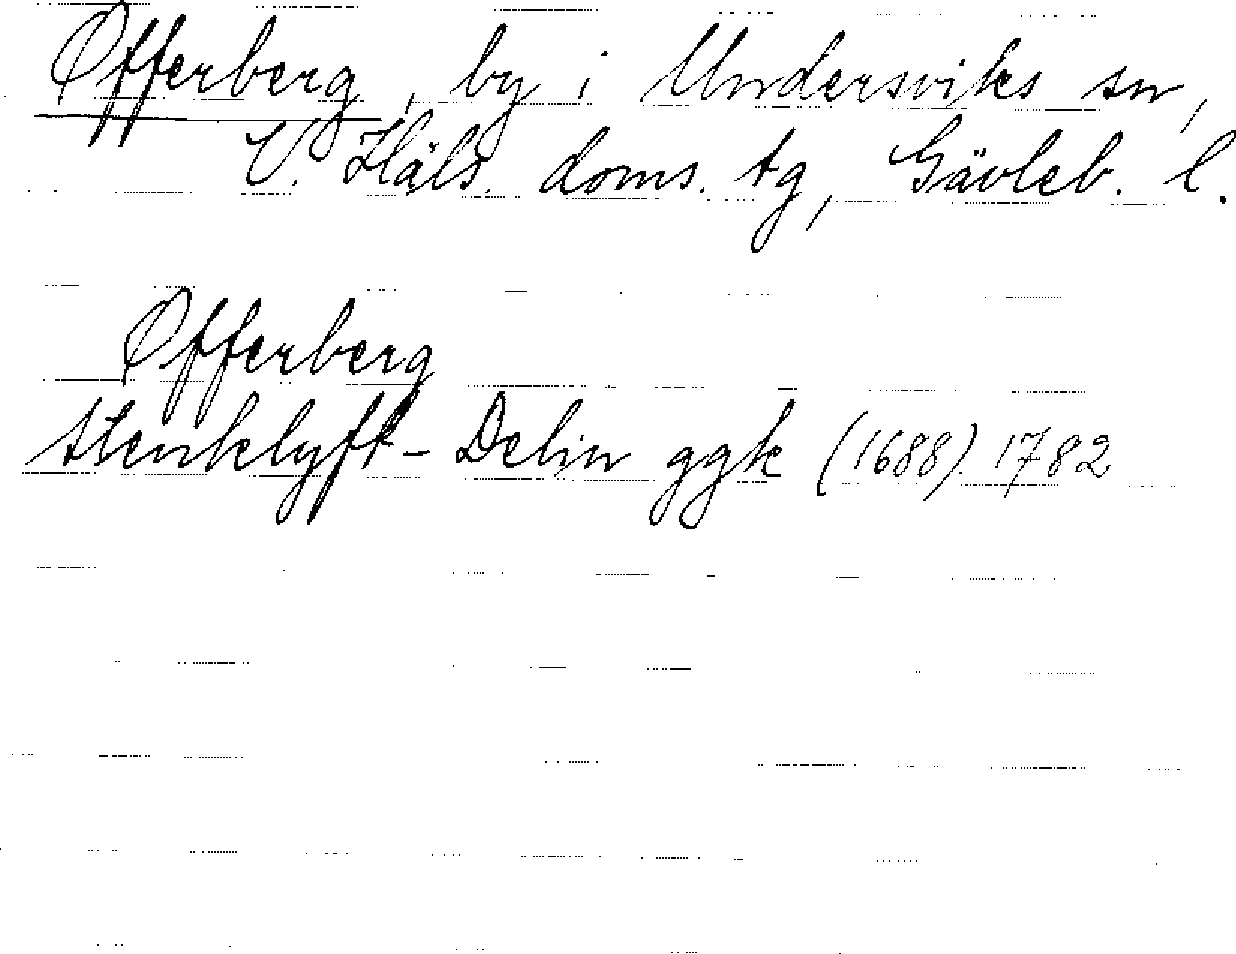 Offerberg, by i Undersviks sn,
V. Häls. doms. tg, Gävleb. l.
Offerberg
Stenklyft- Delin ggk (1688) 1782